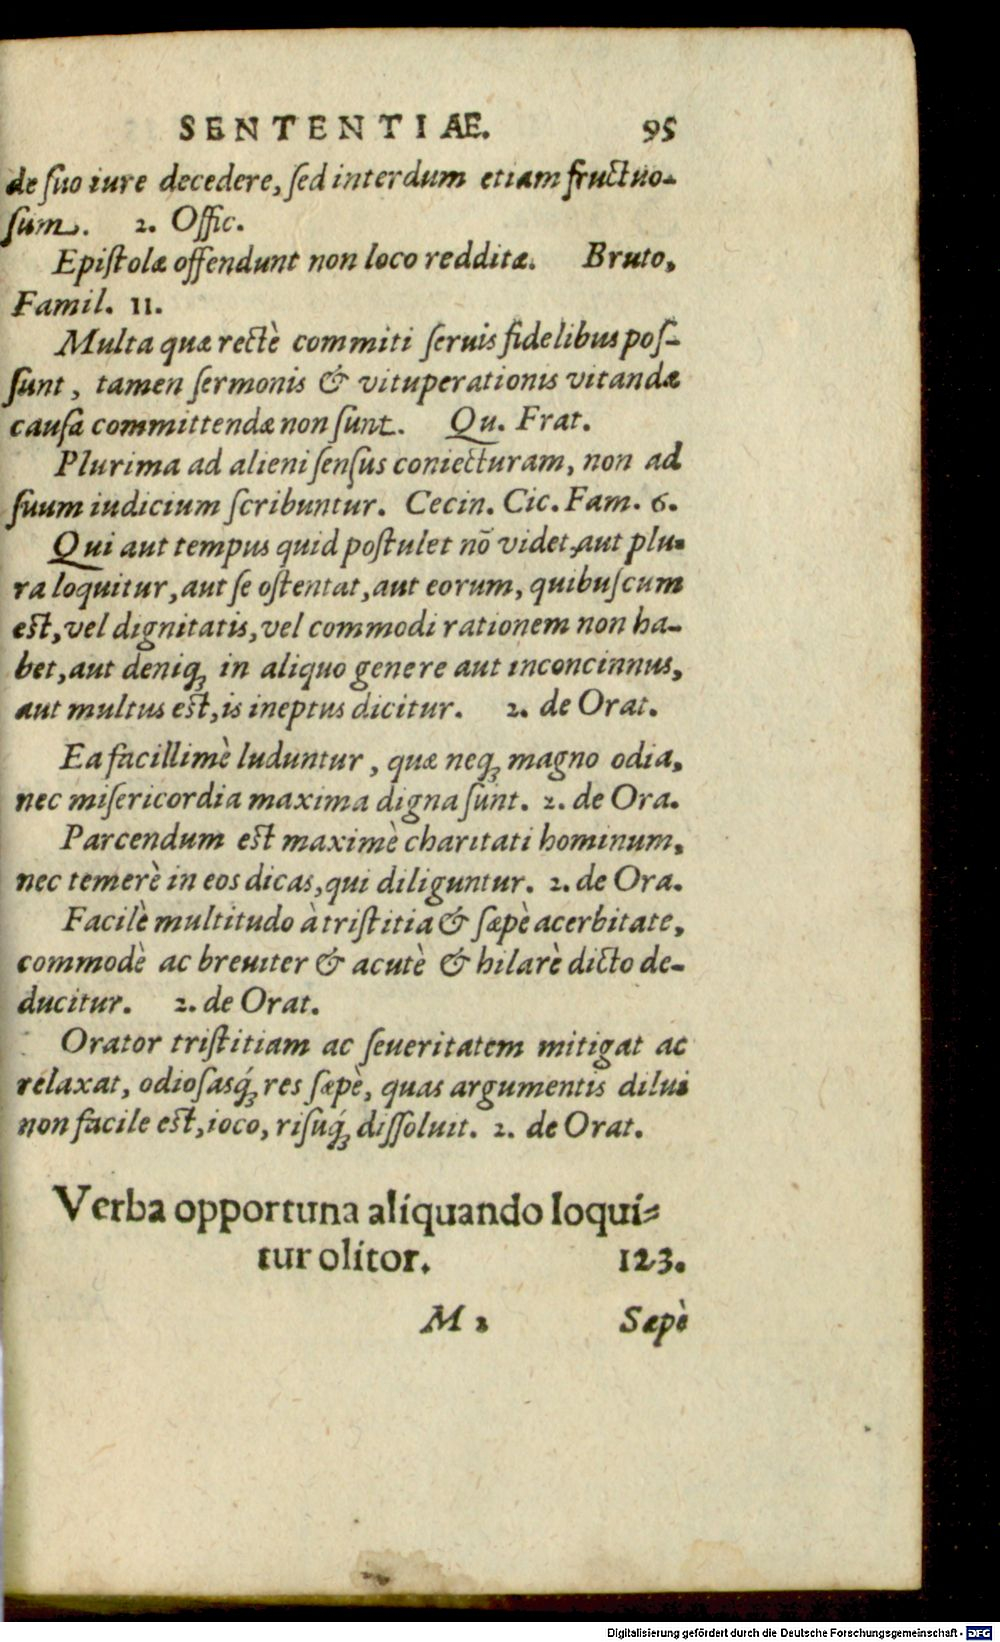 SENTENTIAE. 95
de ſuo iure decedere, ſed interdum etiam fructuo-
ſum. 2. Offic.
Epiſtolæ offendunt non loco redditæ. Bruto,
Famil. 11.
Multa quæ rectè commiti ſeruis fidelibus poſ-
ſunt, tamen ſermonis & vituperationis vitandæ
cauſa committendæ non ſunt. Qu. Frat.
Plurima ad alieni ſenſus coniecturam, non ad
ſuum iudicium ſcribuntur. Cecin. Cic. Fam. 6.
Qui aut tempus quid poſtulet nō videt, aut plu-
ra loquitur, aut ſe oſtentat, aut eorum, quibuſcum
eſt, vel dignitatis, vel commodi rationem non ha-
bet, aut deniq́ꝫ in aliquo genere aut inconcinnus,
aut multus eſt, is ineptus dicitur. 2. de Orat.
Ea facillimè luduntur, quæ neqꝫ magno odia,
nec miſericordia maxima digna ſunt. 2. de Ora.
Parcendum eſt maximè charitati hominum,
nec temerè in eos dicas, qui diliguntur. 2. de Ora.
Facilè multitudo à triſtitia & ſæpè acerbitate,
commodè ac breuiter & acutè & hilarè dicto de-
ducitur. 2. de Orat.
Orator triſtitiam ac ſeueritatem mitigat ac
relaxat, odioſasq́ꝫ res ſæpè, quas argumentis dilui
non facile eſt, ioco, riſuq́ꝫ diſſoluit. 2. de Orat.
Verba opportuna aliquando loqui-
tur olitor. 123.
M 2 Sæpè
Digitalisierung gefördert durch die Deutsche Forschungsgemeinschaft - DFG